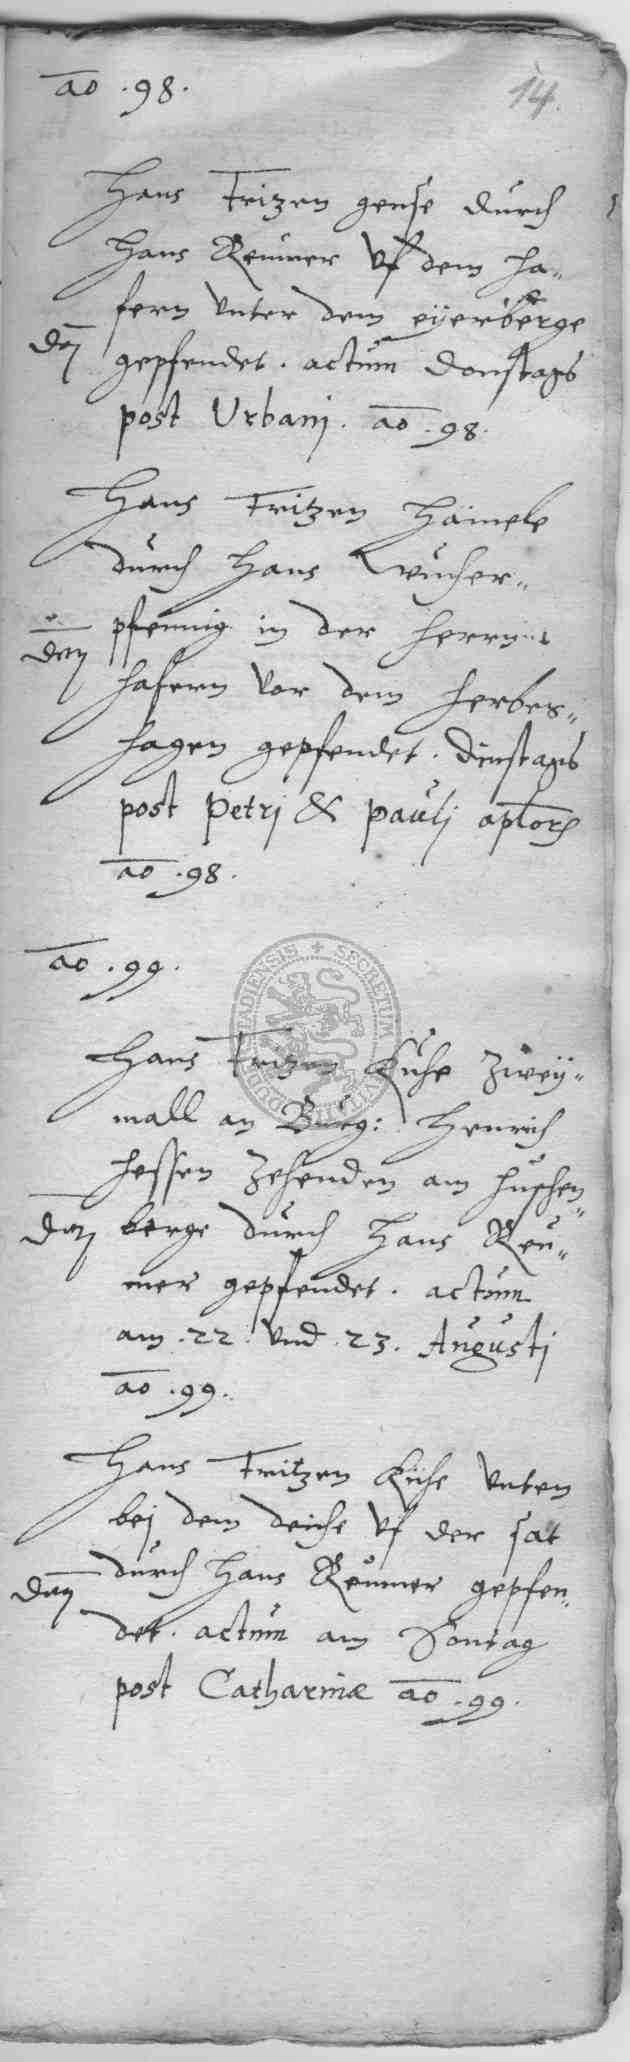 ao .98.
14.
Hans Fritzen gense durch
Hans Reumer vf dem ha„
fern vnter dem eyerberge
gepfendet. actum Donstags
post Urbanj. ao .98.
Hans Fritzen Haimele
durch Hans Wucher„
pfennig in der Herrn
hafern vor dem herber„
hagen gepfendet. dinstags
post Petrj & paulj aptorũ
ao .98.
ao .99.
SECRETUM
Hans Fritzen Kuhe zwey„
mall an Burg: Henrich
Hessen Zehenden am huschen„
berge durch Hans Reu„
mer gepfendet. actum
am .22. vnd .23. Augustj
ao .99.
Hans Fritzen Kuhe vnten
bej dem deiche vf der sat
durch Hans Reumer gepfen„
det. actum am Sontag
post Catharinæ ao .99.